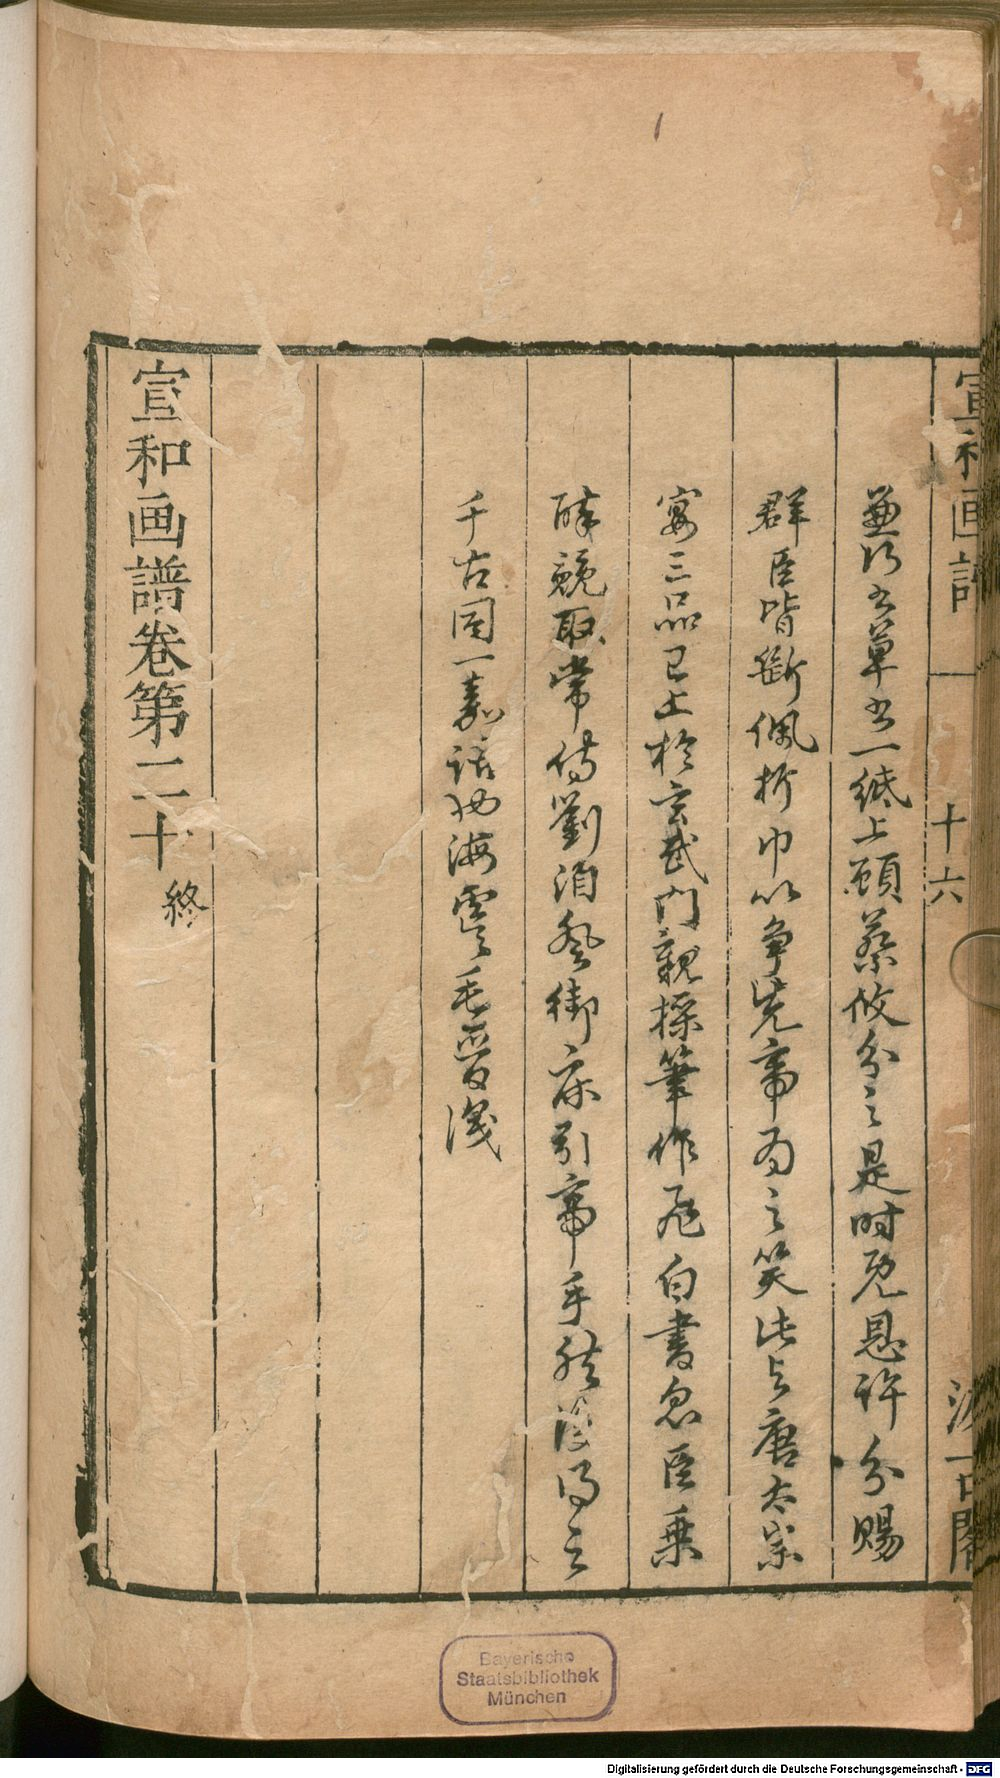 宣和画譜 十六 汲古閣
兼行書草書一紙上顧蔡攸分之是時既恩許分賜
群臣皆斷佩折巾以争先帝為之笑此与唐太宗
宴三品已上於玄武門親操筆作飛白書忽臣乗
醉競取常侍劉洎登御床引帝手然後得之
千古同一嘉話也海虞毛晉識
宣和画譜卷第二十終
1
Bayerische
Staatsbibliothek
München
Digitalisierung gefördert durch die Deutsche Forschungsgemeinschaft - DFG